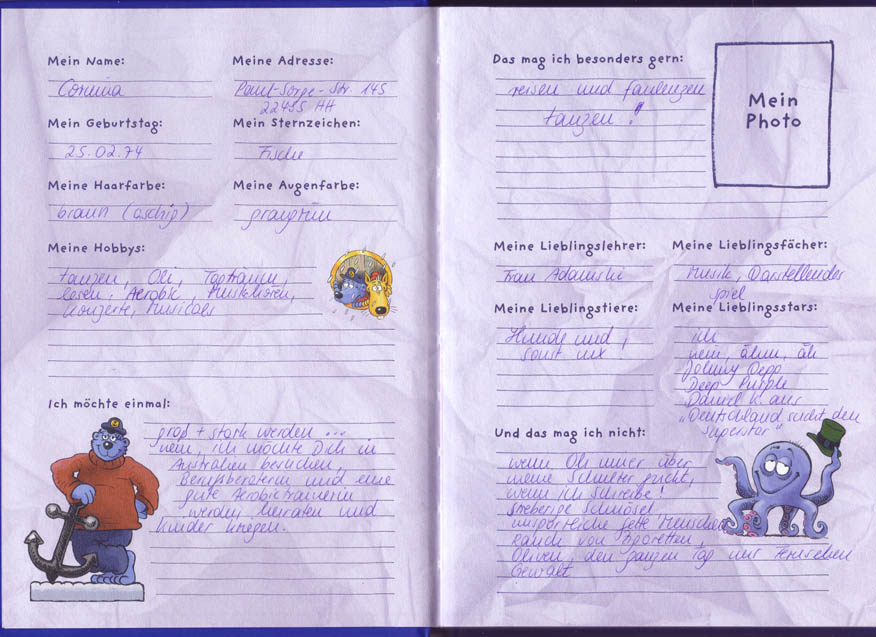 Mein Name:
Corinna
Meine Adresse:
Paul-Sorge-Str. 145
22455 HH
Mein Geburtstag:
25.02.74
Mein Sternzeichen:
Fische
Meine Haarfarbe:
braun (aschig)
Meine Augenfarbe:
graugrün
Meine Hobbys:
tanzen, Oli,
lesen, Aerobic, Musikhören,
Konzerte, Musicals
Ich möchte einmal:
groß + stark werden ...
nein, ich möchte Dich in
Australien besuchen,
Berufsberaterin und eine
gute Aerobictrainerin
werden, heiraten und
Kinder kriegen.
Das mag ich besonders gern:
reisen und faulenzen
tanzen!
Mein
Photo
Meine Lieblingslehrer:
Frau
Meine Lieblingsfächer:
Musik, Darstellendes
Spiel
Meine Lieblingstiere:
Hunde und,
sonst nix
Meine Lieblingsstars:
ich
nein, ähm, äh
Johnny Depp
Deep Purple
Daniel K. aus
„Deutschland sucht den
Superstar“
Und das mag ich nicht:
wenn Oli immer über
meine Schulter guckt,
wenn ich schreibe!
Schnösel
unsportliche fette Menschen
Rauch von Zigaretten,
Oliven, den ganzen Tag nur Fernsehen
Gewalt